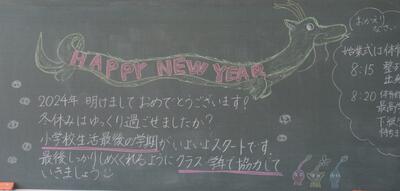 HAPPY NEW YEAR
2024年 明けましておめでとうございます!
冬休みはゆっくり過ごせましたか?
小学校生活最後の学期がいよいよスタートです。
最後しっかりしめくくれるようにクラス・学年で協力して
いきましょう
おかえり
なさい
始業式は体
8:15
8:20